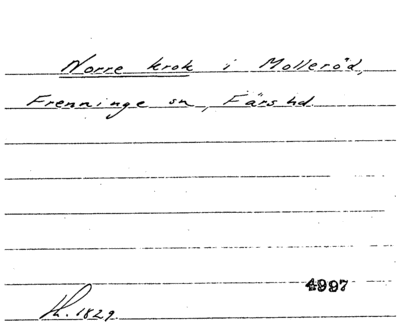 Norre krok i Molleröd,
Frenninge sn, Färs hd.
4997
H. 1829.